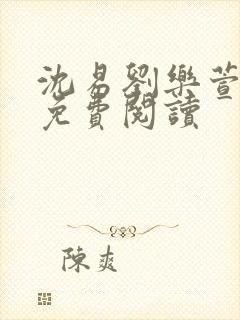 沈易劉樂萱
免費閱讀
陳爽